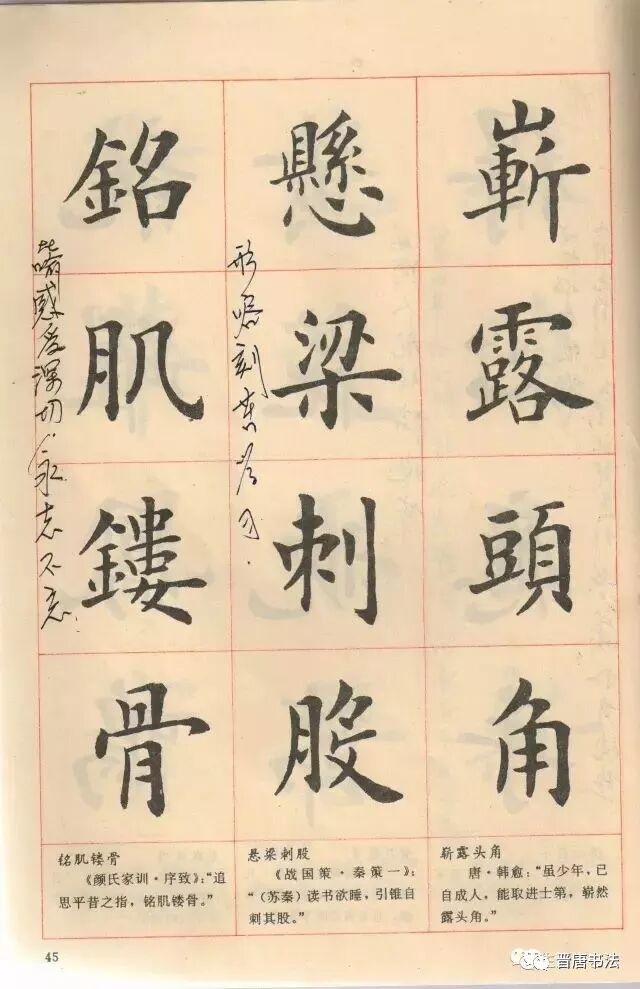 嶄露頭角
懸梁刺股
形喻刻苦学习.
銘肌鏤骨
比喻感受深切.永志不忘
崭露头角
唐·韩愈:“虽少年,已
自成人,能取进士第,崭然
露头角。”
悬梁刺股
《战国策·秦策一》:
“(苏秦)读书欲睡,引锥自
刺其股。”
铭肌镂骨
《颜氏家训·序致》:“追
思平昔之指,铭肌镂骨。”
45
晋唐书法